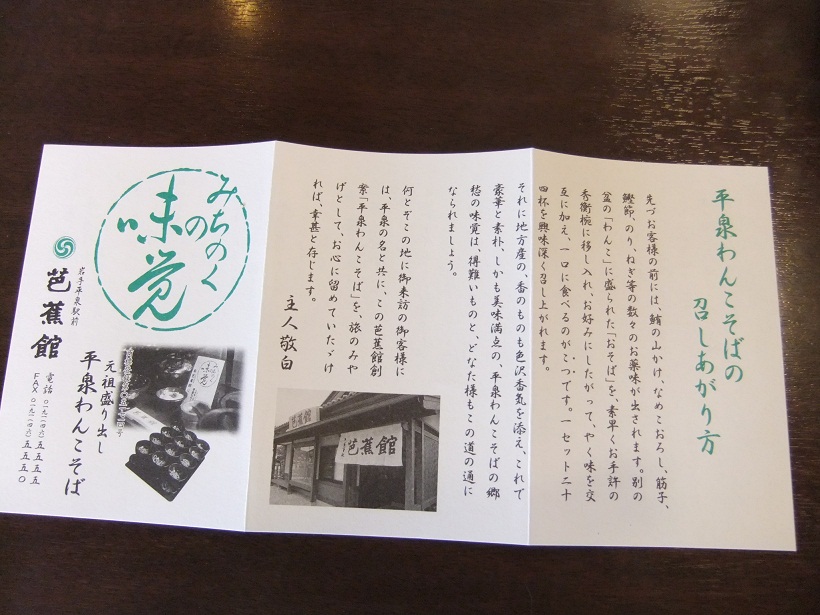 平泉わんこそばの
召しあがり方
先づお客様の前には、鮪の山かけ、なめこおろし、筋子、
鰹節、のり、ねぎ等の数々のお薬味が出されます。別の
盆の「わんこ」に盛られた「おそば」を、素早くお手許の
秀衡椀に移し入れ、お好みにしたがって、やく味を交
互に加え、一口に食べるのがこつです。一セット二十
四杯を興味深く召し上がれます。
それに地方産の、香のものも色沢香気を添え、これで
豪華と素朴、しかも美味満点の、平泉わんこそばの郷
愁の味覚は、得難いものと、どなた様もこの道の通に
なられましょう。
何とぞこの地に御来訪の御客様に
は、平泉の名と共に、この芭蕉館創
案「平泉わんこそば」を、旅のみや
げとして、お心に留めていたゞけ
れば、幸甚と存じます。
主人敬白
芭蕉館
芭蕉館
みちのく
の
味覚
味覚
元祖盛り出し
平泉わんこそば
岩手平泉駅前
芭蕉館
電話 〇一九一(四六)五五五五
FAX 〇一九一(四六)五五五〇